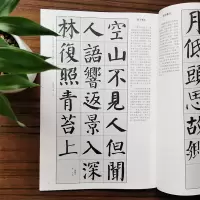 月低頭思故
空山不見人但聞
人語響返景入深
林復照青苔上